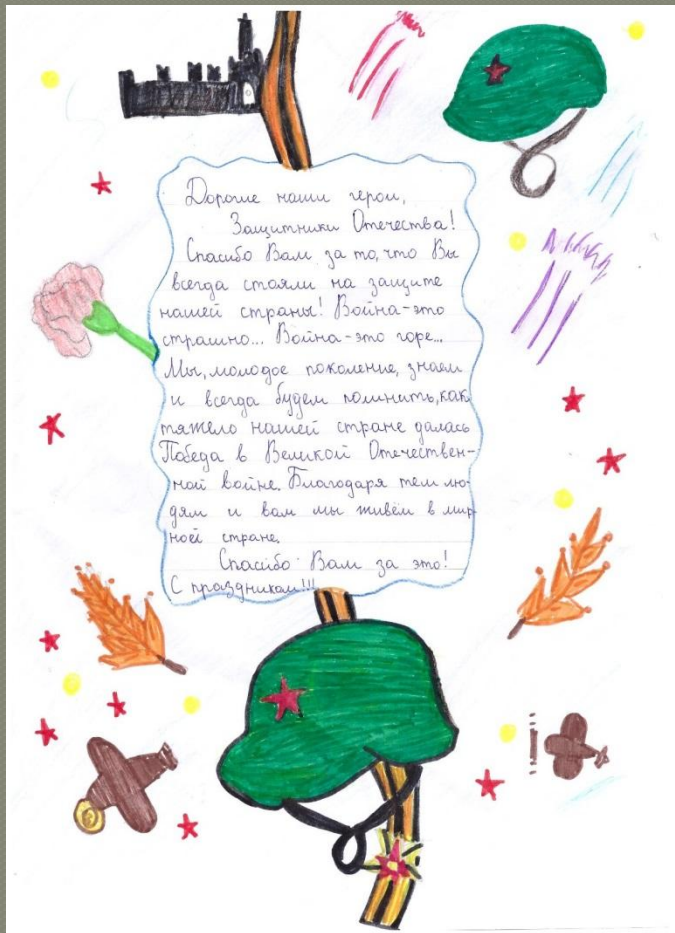 Дорогие наши герои,
Защитники Отечества!
Спасибо Вам за то, что Вы
всегда стояли на защите
нашей страны! Война-это
страшно... Война-это горе...
Мы, молодое поколение, знаем
и всегда будем помнить, как
тяжело нашей стране далась
Победа в Великой Отечествен-
ной войне. Благодаря тем лю-
дям и вам мы живём в мир
ной стране.
Спасибо Вам за это!
С праздником!!!